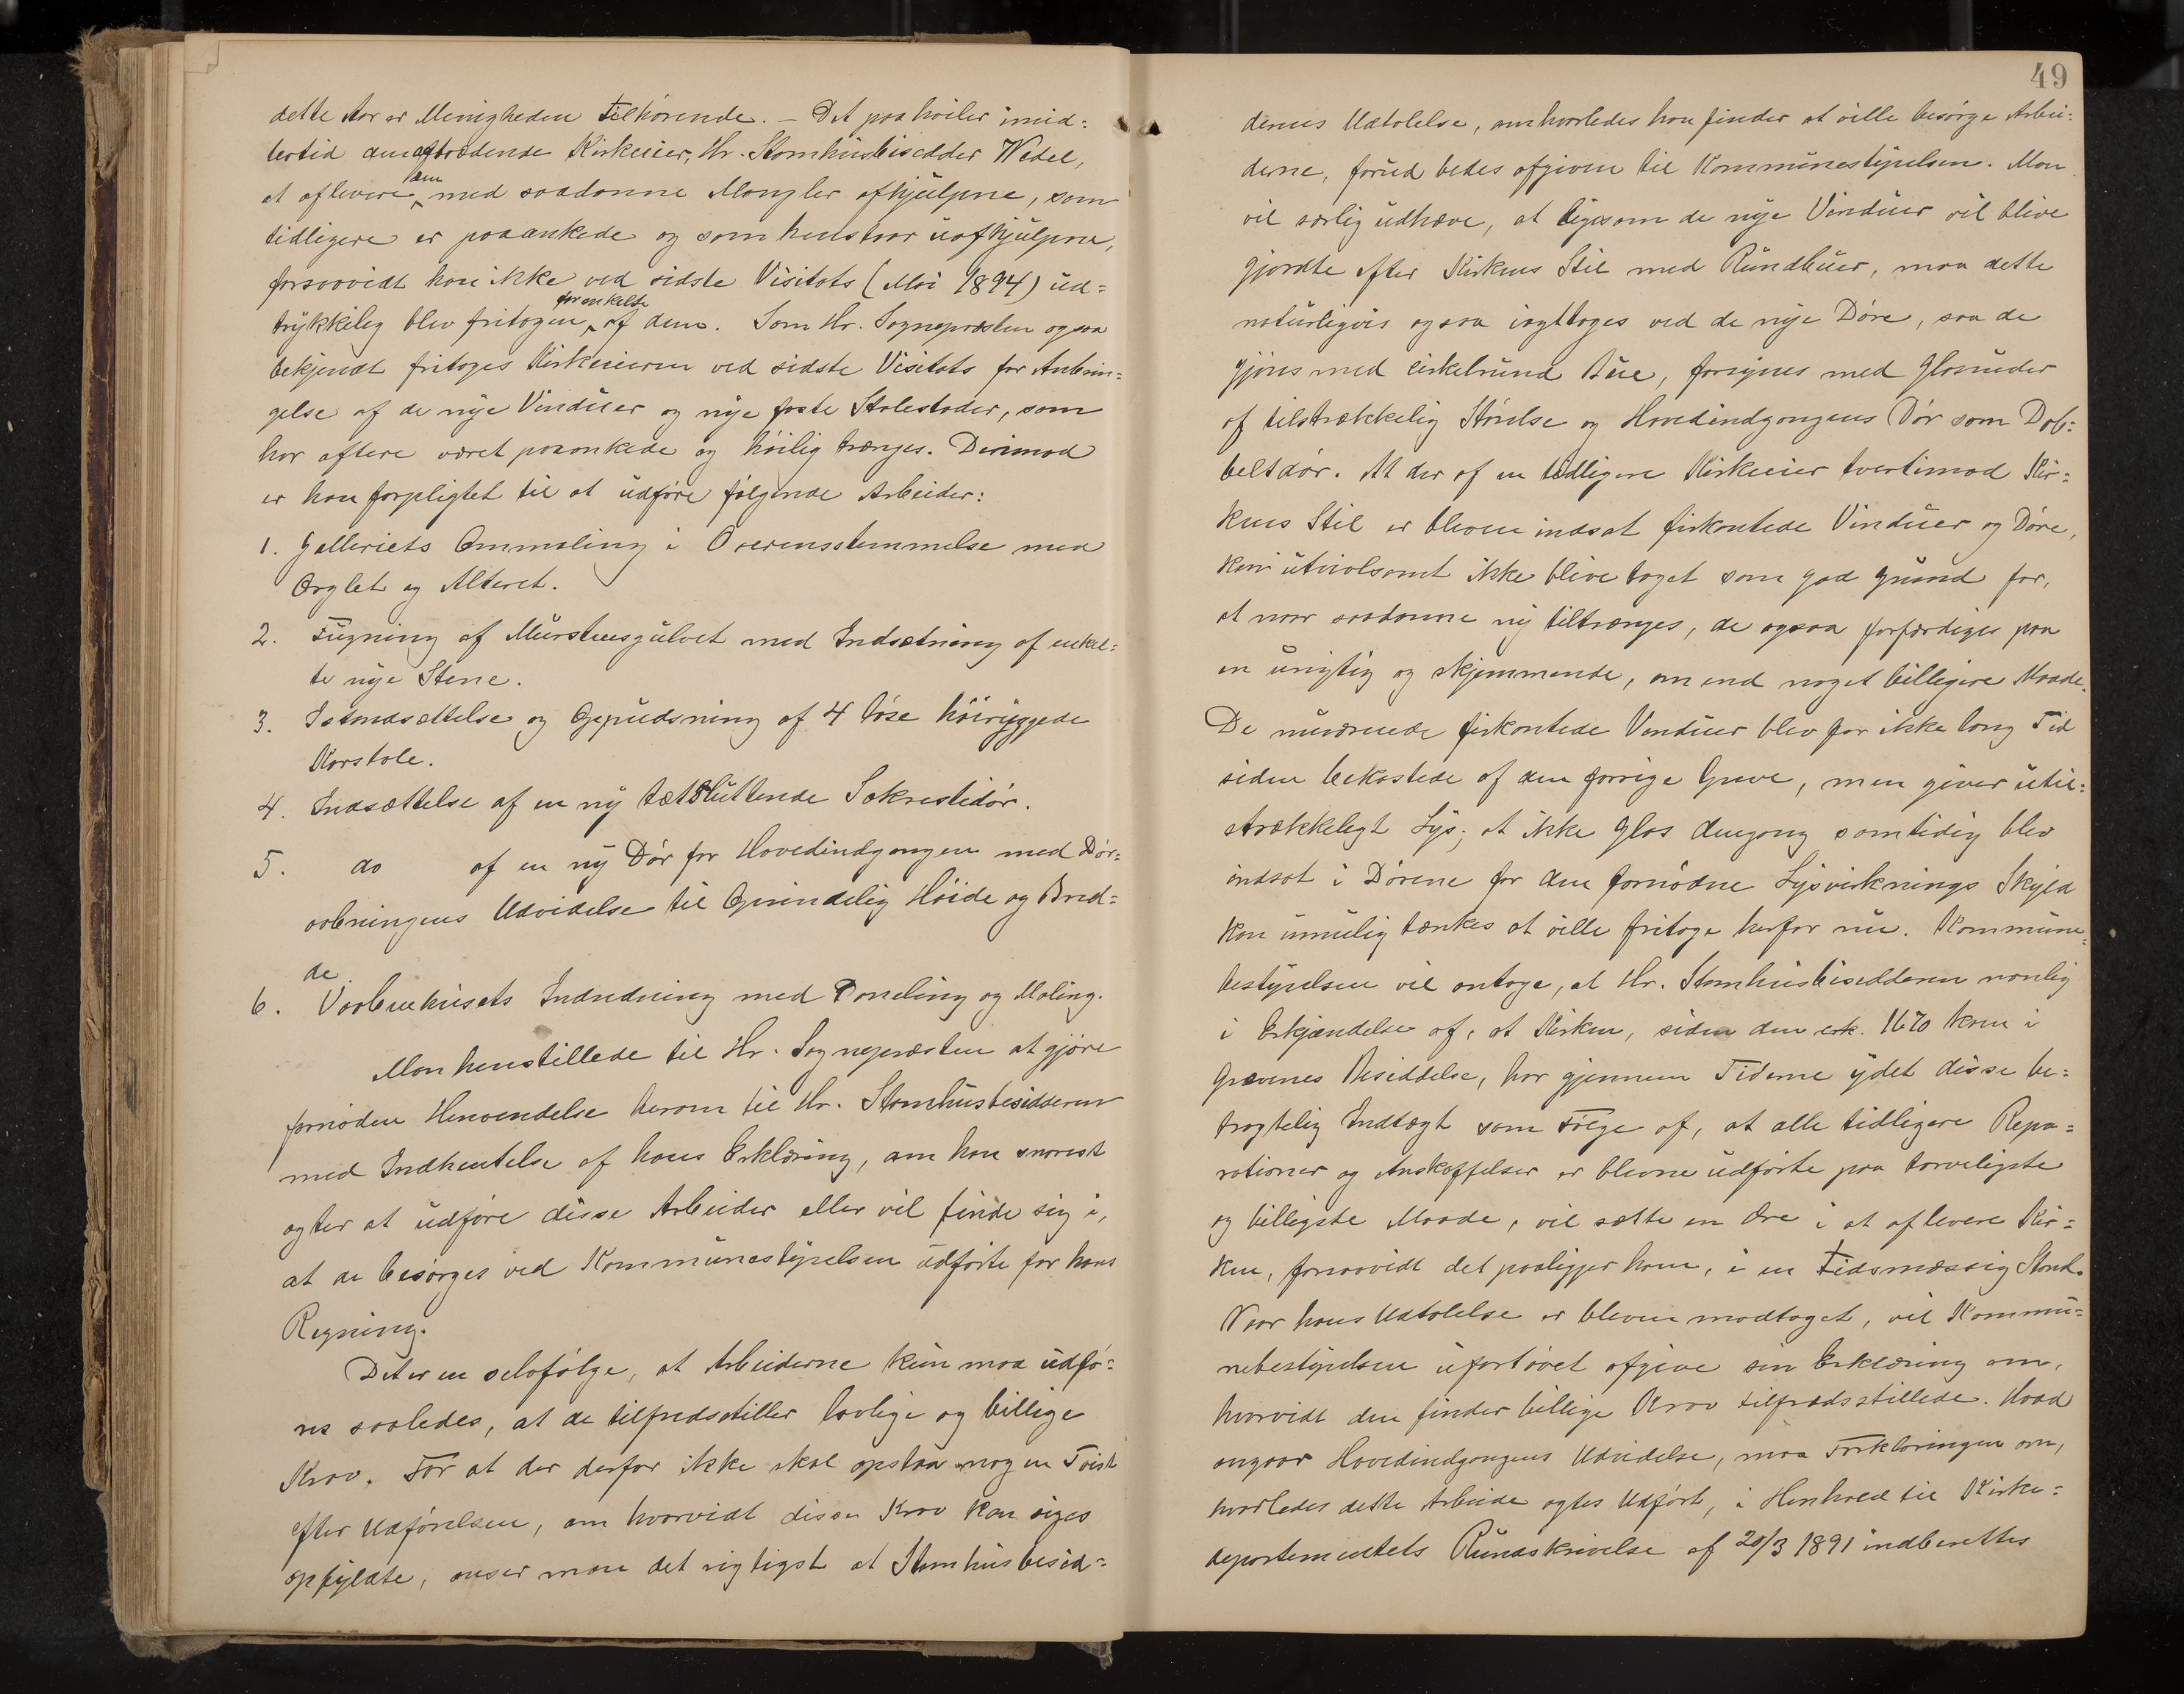 dette Aar er Menigheden tilhørende. – Det paahviler imid=
lertid den aftrædende Kirkeeier, Hr. Stamhusbesidder Wedel,
at aflevere den med saadanne Mangler afhjulpne, som
tidligere er paaankede og som henstaar uafhjulpne,
forsaavidt han ikke ved sidste Visitats (Mai 1894) ud=
trykkelig blev fritagen for enkelte af dem. Som Hr. Sognepresten ogsaa
bekjendt fritoges Kirkeieren ved sidste Visitats for Anbrin=
gelse af de nye Vinduer og nye faste Stolestader, som
har oftere været paaankede og høilig trænges. Derimod
er han forpligtet til at udføre følgende Arbeider:
1. Galleriets Ommaling i Overensstemmelse med
Orglet og Alteret.
2. Fugning af Murstensgulvet med Indsætning af enkel=
te nye Stene.
3. Istandsættelse og Oppudsning af 4 løse høiryggede
Korstole.
4. Indsættelse af en ny tætsluttende Sakrestidør.
5. do af en ny Dør for Hovedindgangen med Dør=
aabningens Udvidelse til Oprindelig Høide og Bred=
de.
6. Vaabenhusets Indredning med Paneling og Maling.
Man henstillede til Hr. Sognepresten at gjøre
fornøden Henvendelse herom til Hr. Stamhusbesidderen
med Indhentelse af hans Erklæring, om han snarest
agter at udføre disse Arbeider eller vil finde sig i,
at de besørges ved Kommunestyrelsen udførte for hans
Regning.
Det er en selvfølge, at Arbeiderne kun maa udfø=
res saaledes, at de tilfredsstiller lovlige og billige
Krav. For at der derfor ikke skal opstaa nogen Tvist
efter Udførelsen, om hvorvidt disse Krav kan siges
opfyldte, anser man det rigtigst at Stamhusbesid=
49
derens Udtalelse, om hvorledes han finder at ville besørge Arbei=
derne, forud bedes afgiven til Kommunestyrelsen. Man
vil særlig udhæve, at ligesom de nye Vinduer vil blive
gjordte efter Kirkens Stil med Rundbuer, maa dette
naturligvis ogsaa iagttages ved de nye Døre, saa de
gjøres med cirkelrund Bue, forsynes med Glasruder
af tilstrækkelig Størelse og Hovedindgangens Dør som Dob=
beltdør. At der af en tidligere Kirkeeier tvertimod Kir=
kens Stil er bleven indsat firkantede Vinduer og Døre,
kan utvivlsomt ikke blive taget som god Grund for,
at naar saadanne ny tiltrænges, de ogsaa forfærdiges paa
en urigtig og skjæmmende, om end noget billigere Maade.
De nuværende firkantede Vinduer blev for ikke lang Tid
siden bekostede af den forrige Greve, men giver util=
strækkeligt Lys; at ikke Glas dengang samtidig blev
indsat i Dørene for den fornødne Lysvirknings Skyld
kan umulig tænkes at ville fritage herfor nu. Kommune=
bestyrelsen vil antage, at Hr. Stamhusbesidderen nemlig
i Erkjendelse af, at Kirken, siden den cirk. 1670 kom i
Grævenes Besiddelse, har gjennem Tiderne ydet disse be=
tragtelig Indtægt som Følge af, at alle tidligere Repa=
rationer og Anskaffelser er blevne udførte paa tarveligste
og billigste Maade, vil sætte en Ære i at aflevere Kir=
ken, forsaavidt det paaligger ham, i en tidsmæssig Stand.
Naar hans Udtalelse er bleven modtaget, vil Kommu=
nebestyrelsen ufortøvet afgive sin Erklæring om,
hvorvidt den finder billige Krav tilfredsstillede. Hvad
angaar Hovedindgangens Udvidelse, maa Forklaringen om,
hvorledes dette Arbeide agtes Udført, i Henhold til Kirke=
departementets Rundskrivelse af 20/3 1891 indberettes